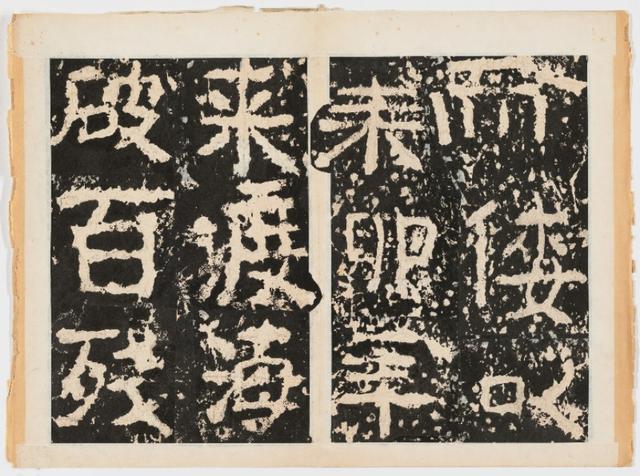 而倭以
辛卯年
来渡海
破百殘